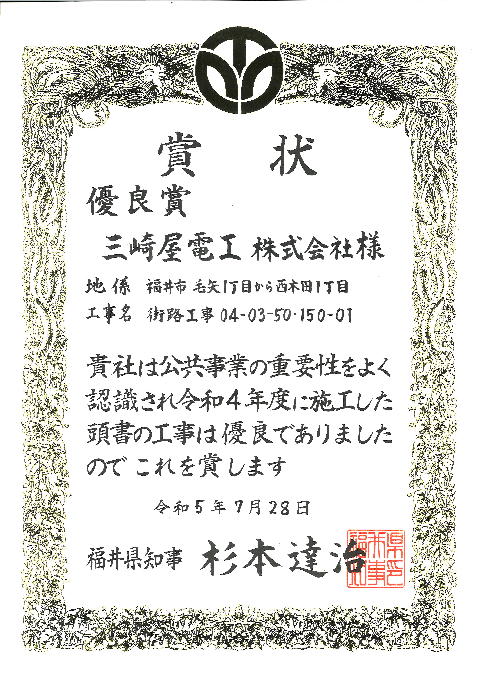 賞状
優良賞
三崎屋電工 株式会社様
地係 福井市 毛矢1丁目から西木田1丁目
工事名 街路工事 04-03-50-150-01
貴社は公共事業の重要性をよく
認識され令和4年度に施工した
頭書の工事は優良でありました
ので これを賞します
令和5年7月28日
福井県知事 杉本達治